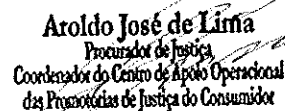 Aroldo José de Lima
Procurador de Justiça
Coordenador do Centro de Apoio Operacional
das Promotorias de Justiça do Consumidor